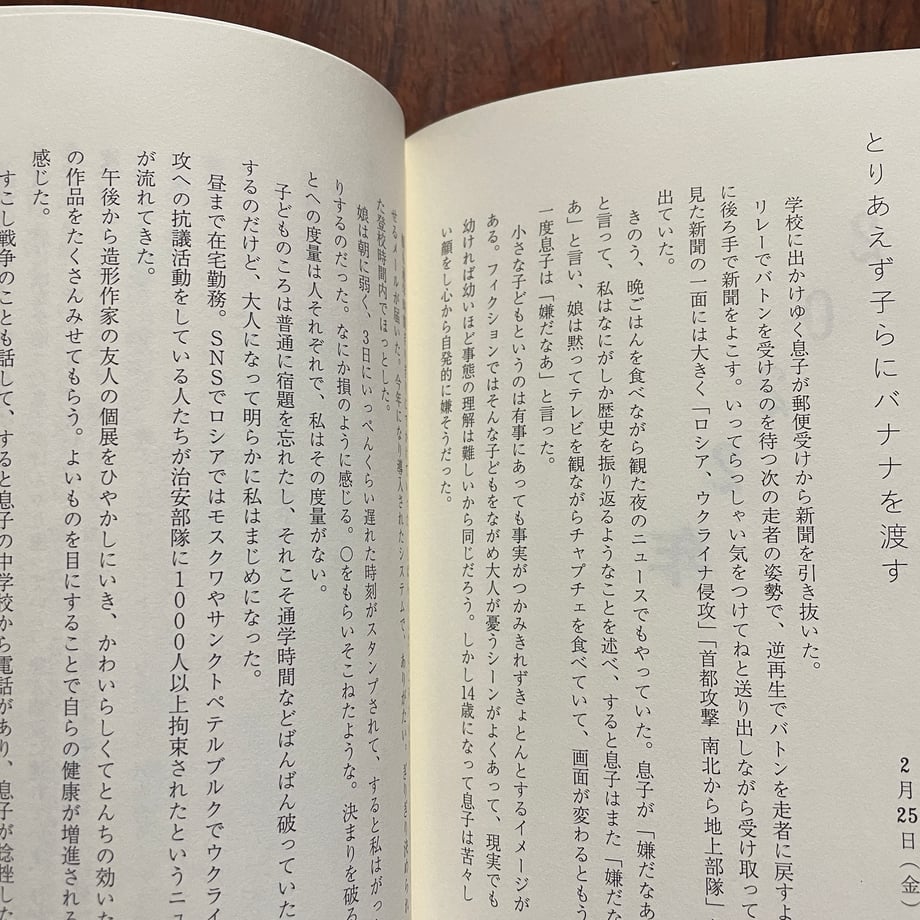 とりあえず子らにバナナを渡す
2月25日（金）
学校に出かけゆく息子が郵便受けから新聞を引き抜いた。
リレーでバトンを受けるのを待つ次の走者の姿勢で、逆再生でバトンを走者に戻すよ
に後ろ手で新聞をよこす。いってらっしゃい気をつけてねと送り出しながら受け取って
見た新聞の一面には大きく「ロシア、ウクライナ侵攻」「首都攻撃 南北から地上部隊」
出ていた。
きのう、晩ごはんを食べながら観た夜のニュースでもやっていた。息子が「嫌だなあ
と言って、私はなにがしか歴史を振り返るようなことを述べ、すると息子はまた「嫌だな
あ」と言い、娘は黙ってテレビを観ながらチャプチェを食べていて、画面が変わるともう
一度息子は「嫌だなあ」と言った。
小さな子どもというのは有事にあっても事実がつかみきれずきょとんとするイメージが
ある。フィクションではそんな子どもをながめ大人が憂うシーンがよくあって、現実でも
幼ければ幼いほど事態の理解は難しいから同じだろう。しかし14歳になって息子は苦々し
い顔をし心から自発的に嫌そうだった。
せるメールが届いた。今年になり導入されたシステムで、ありがたい。
た登校時間内でほっとした。
娘は朝に弱く、3日にいっぺんくらい遅れた時刻がスタンプされて、すると私はがっ
りするのだった。なにか損のように感じる。〇をもらいそこねたような。決まりを破る
とへの度量は人それぞれで、私はその度量がない。
子どものころは普通に宿題を忘れたし、それこそ通学時間などばんばん破っていた
するのだけど、大人になって明らかに私はまじめになった。
昼まで在宅勤務。SNSでロシアではモスクワやサンクトペテルブルクでウクライ
攻への抗議活動をしている人たちが治安部隊に1000人以上拘束されたというニュ
が流れてきた。
午後から造形作家の友人の個展をひやかしにいき、かわいらしくてとんちの効いた
の作品をたくさんみせてもらう。よいものを目にすることで自らの健康が増進される
感じた。
すこし戦争のことも話して、すると息子の中学校から電話があり、息子が捻挫した